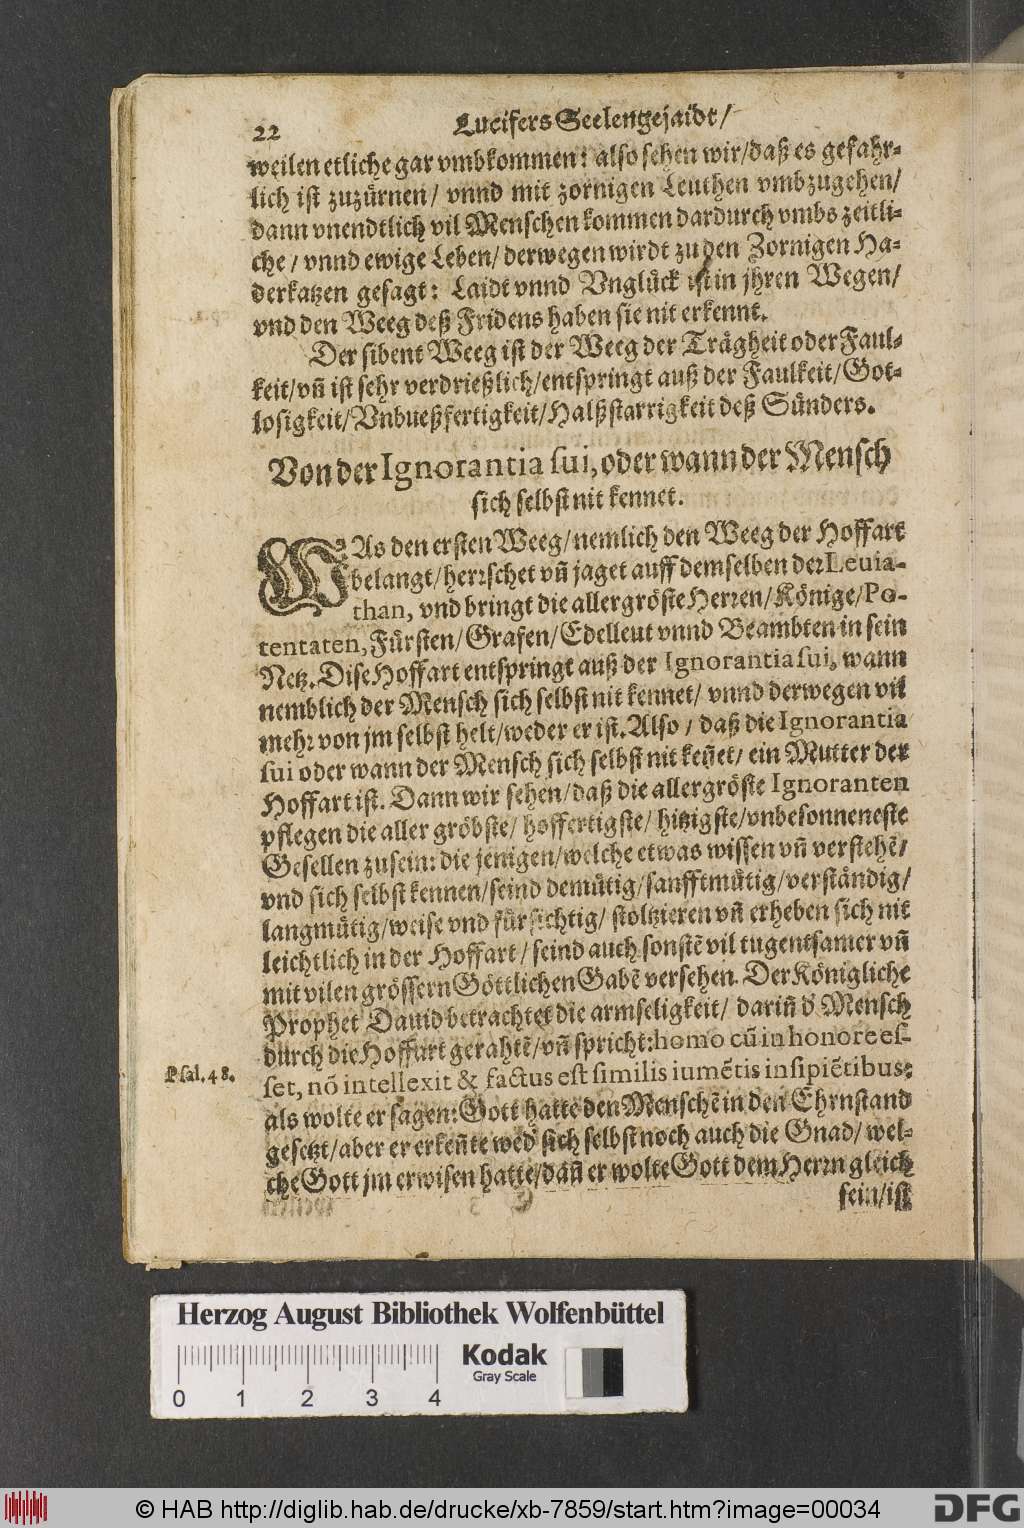 22 Lucifers Seelengejaidt/
weilen etliche gar vmbkommen: also sehen wir/daß es gefahr-
lich ist zuzürnen/ vnnd mit zornigen Leuthen vmbzugehen/
dann vnendtlich vil Menschen kommen dardurch vmbs zeitli-
che/ vnnd ewige Leben/ derwegen wirdt zu den Zornigen Ha-
derkatzen gesagt: Laidt vnnd Vnglück ist in jhren Wegen/
vnd den Weeg deß Fridens haben sie nit erkennt.
Der sibent Weeg ist der Weeg der Trägheit oder Faul-
keit/vñ ist sehr verdrießlich/entspringt auß der Faulkeit/Got-
losigkeit/Vnbueßfertigkeit/Halßstarrigkeit deß Sünders.
Von der Ignorantia sui, oder wann der Mensch
sich selbst nit kennet.
WAs den ersten Weeg/nemlich den Weeg der Hoffart
belangt/herrschet vñ jaget auff demselben der Leuia-
than, vnd bringt die allergröste Herren/Könige/Po-
tentaten, Fürsten/Grafen/Edelleut vnnd Beambten in sein
Netz. Dise Hoffart entspringt auß der Ignorantia sui, wann
nemblich der Mensch sich selbst nit kennet/ vnnd derwegen vil
mehr von jm selbst helt/weder er ist. Also/ daß die Ignorantia
sui oder wann der Mensch sich selbst nit keñet/ ein Mutter der
Hoffart ist. Dann wir sehen/daß die allergröste Ignoranten
pflegen die aller gröbste/ hoffertigste/ hitzigste/vnbesonneneste
Gesellen zusein: die jenigen/welche etwas wissen vñ verstehē/
vnd sich selbst kennen/seind demütig/sanfftmütig/verständig/
langmütig/weise vnd fürsichtig/ stoltzieren vñ erheben sich nit
leichtlich in der Hoffart/ seind auch sonstē vil tugentsamer vñ
mit vilen grössern Göttlichen Gabē versehen. Der Königliche
Prophet Dauid betrachtet die armseligkeit/ dariñ d̄ Mensch
durch die Hoffart gerahtē/vñ spricht: homo cū in honore es-
set, nō intellexit & factus est similis iumētis insipiētibus:
Psal. 48.
als wolte er sagen: Gott hatte den Menschē in den Ehrnstand
gesetzt/aber er erkeñte wed̄ sich selbst noch auch die Gnad/ wel-
che Gott jm erwisen hatte/dañ er wolte Gott dem Herrn gleich
sein/ist
Herzog August Bibliothek Wolfenbüttel
Kodak
Gray Scale
0 1 2 3 4
© HAB http://diglib.hab.de/drucke/xb-7859/start.htm?image=00034
DFG